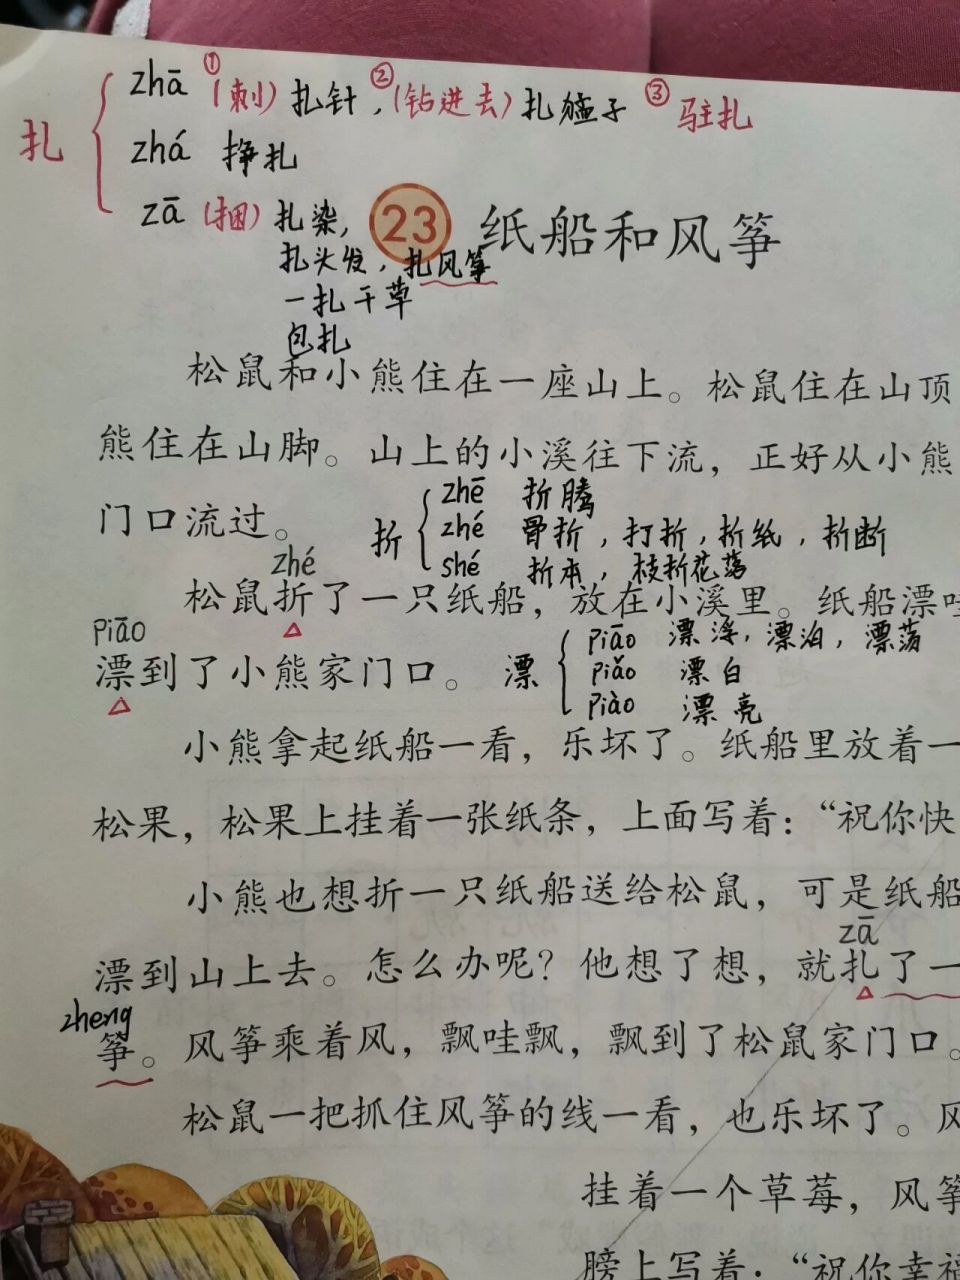 扎 zhā ①(刺)扎针，②(钻进去)扎猛子 ③驻扎
zhá 挣扎
zā (捆)扎染，
扎头发，扎风筝
一扎干草
包扎
23 纸船和风筝
松鼠和小熊住在一座山上。松鼠住在山顶
熊住在山脚。山上的小溪往下流，正好从小熊
门口流过。
折 zhē 折腾
zhé 骨折，打折，折纸，折断
shé 折本，枝折花落
zhé
松鼠折了一只纸船，放在小溪里。纸船漂哇
piāo
漂到了小熊家门口。
漂 piāo 漂浮，漂泊，漂荡
piǎo 漂白
piào 漂亮
小熊拿起纸船一看，乐坏了。纸船里放着一
松果，松果上挂着一张纸条，上面写着：“祝你快
小熊也想折一只纸船送给松鼠，可是纸船
zā
漂到山上去。怎么办呢？他想了想，就扎了一
zheng
筝。风筝乘着风，飘哇飘，飘到了松鼠家门口。
松鼠一把抓住风筝的线一看，也乐坏了。风
挂着一个草莓，风筝
膀上写着：“祝你幸福